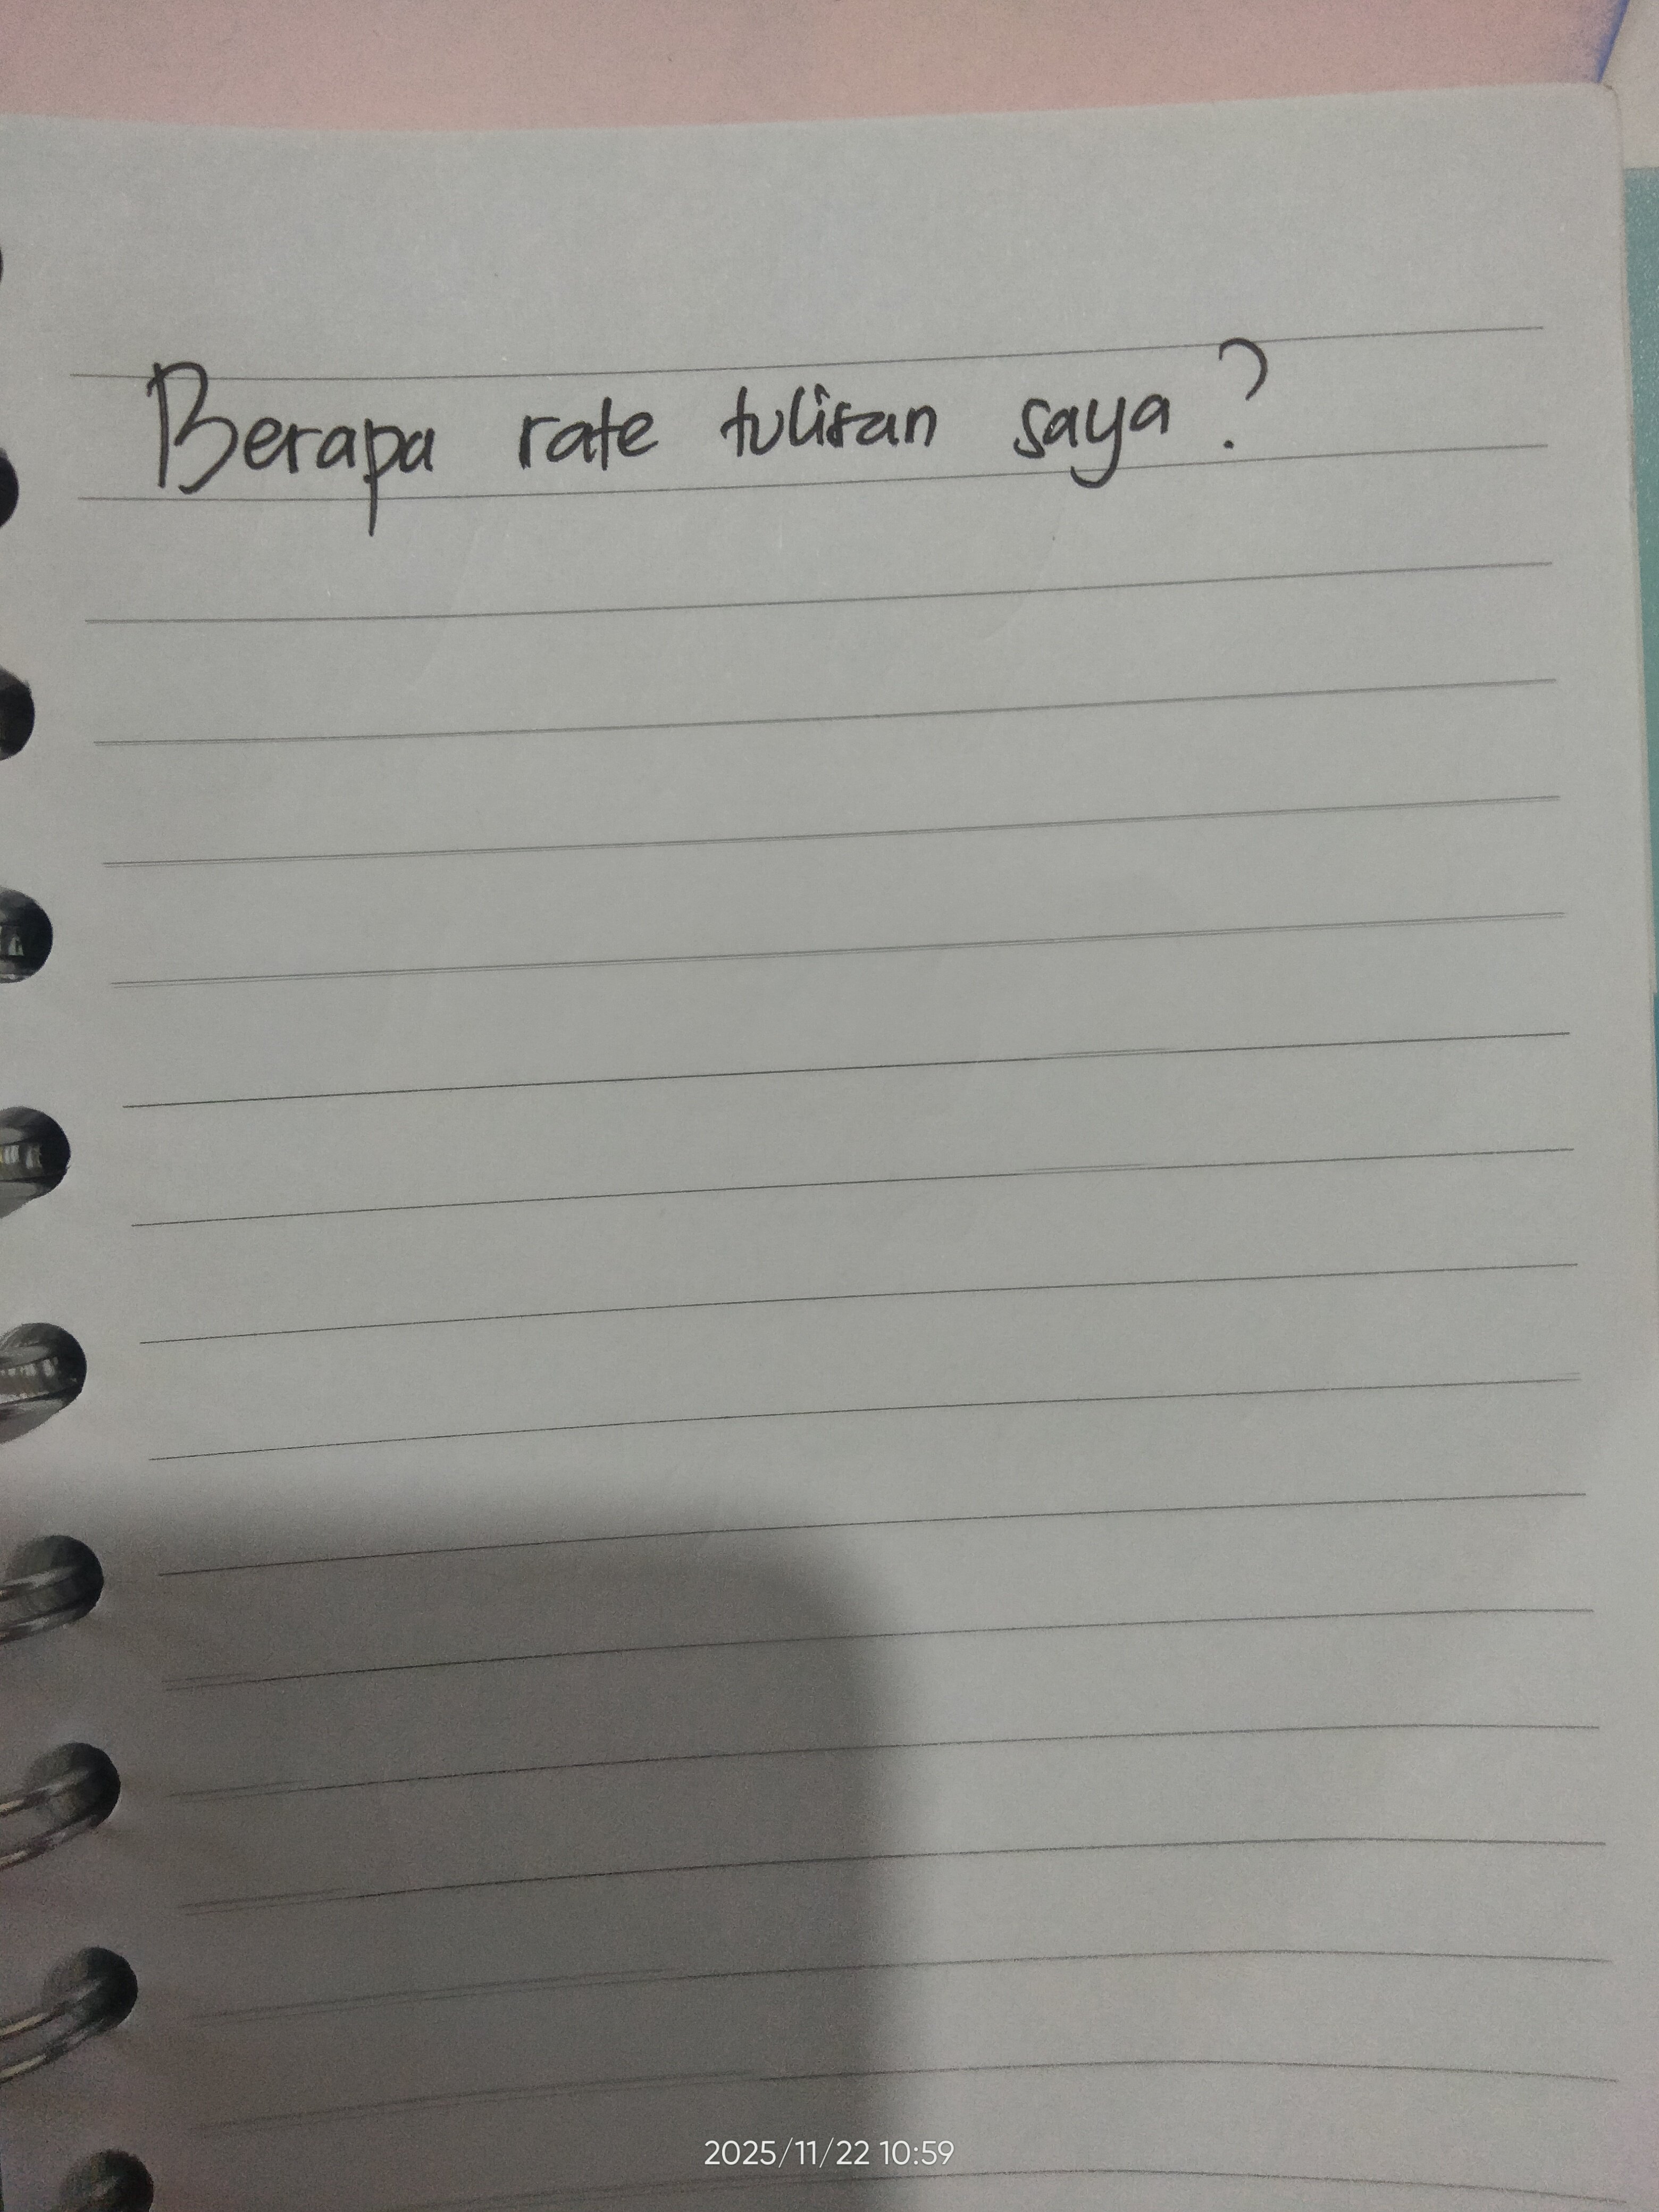 Berapa rate tulisan saya?
2025/11/22 10:59